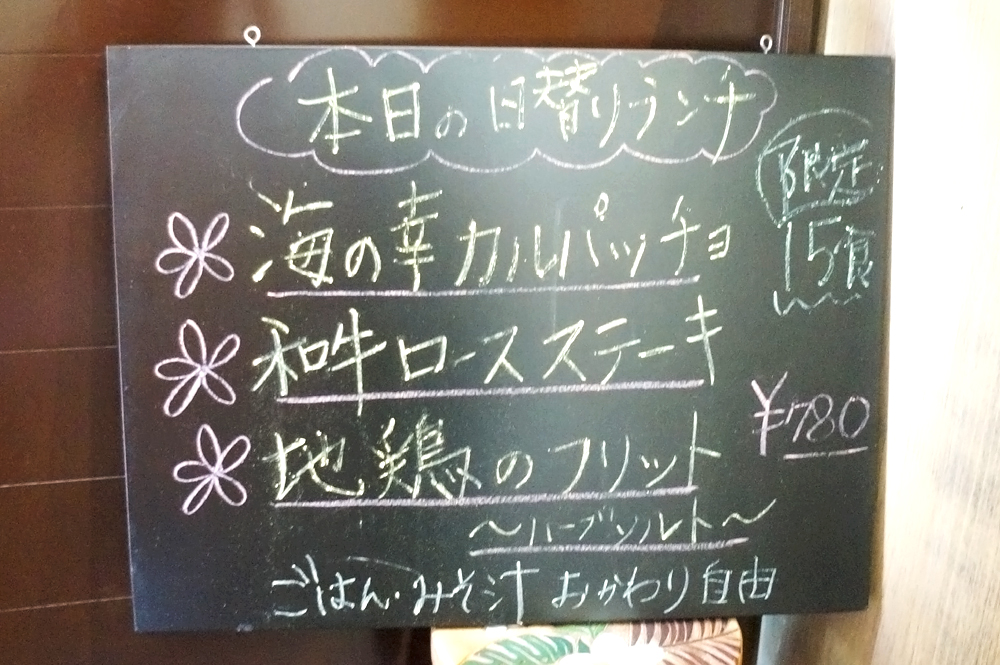 本日の日替りランチ
限定
15食
海の幸カルパッチョ
和牛ロースステーキ
¥780
地鶏のフリット
〜ハーブソルト〜
ごはん・みそ汁 おかわり自由